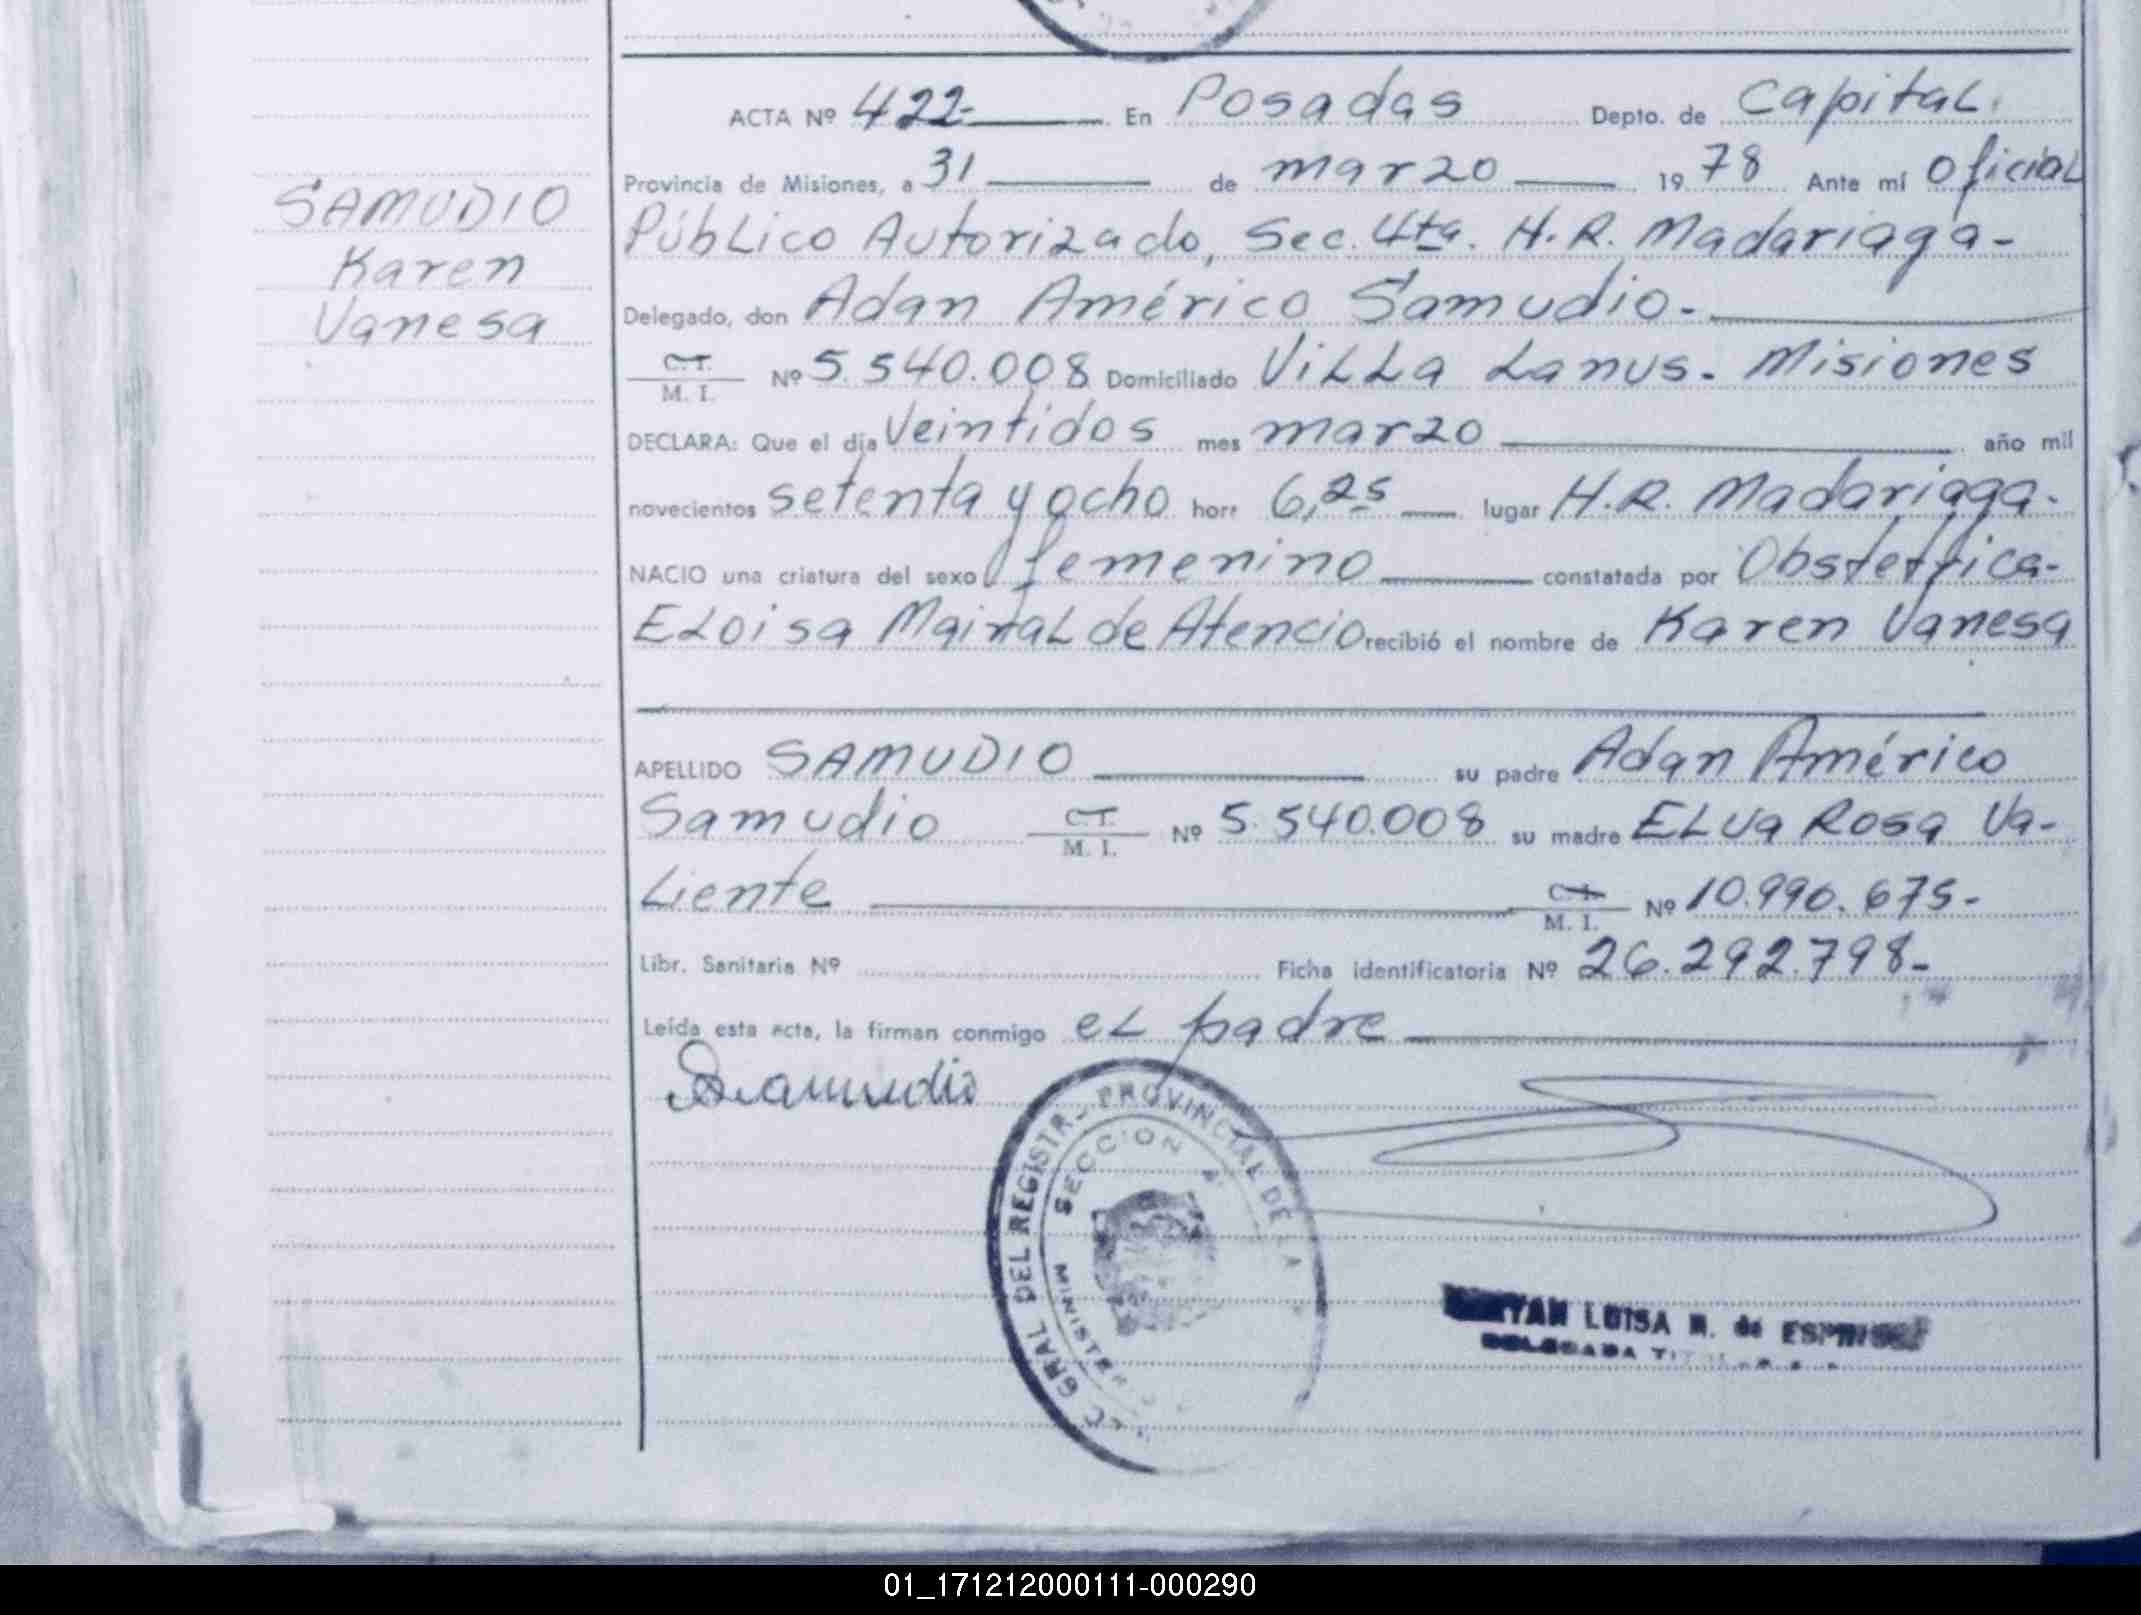 ACTA Nº 422- En Posadas Depto. de Capital.
Provincia de Misiones, a 31 de marzo 1978 Ante mí Oficial
Público Autorizado, Sec. 4ta. H.R. Madariaga-
Delegado, don Adan Américo Samudio.-
C.I.
M. I. Nº 5.540.008 Domiciliado Villa Lanus. Misiones
DECLARA: Que el día Veintidos mes marzo año mil
novecientos setenta y ocho hora 6,25 lugar H.R. Madariaga.
NACIO una criatura del sexo femenino constatada por Obstetrica-
Eloisa de Atencio recibió el nombre de Karen Vanesa
APELLIDO SAMUDIO su padre Adan Américo
Samudio C.I.
M. I. Nº 5.540.008 su madre Elva Rosa Va-
liente C.I.
M. I. Nº 10.990.675-
Libr. Sanitaria Nº Ficha identificatoria Nº 26.292.798-
Leída esta acta, la firman conmigo el padre
Samudio
SAMUDIO
Karen
Vanesa
GRAL DEL REGISTR PROVINCIAL DE LA
SECCION 4
LUISA de
DELEGADA
01_171212000111-000290